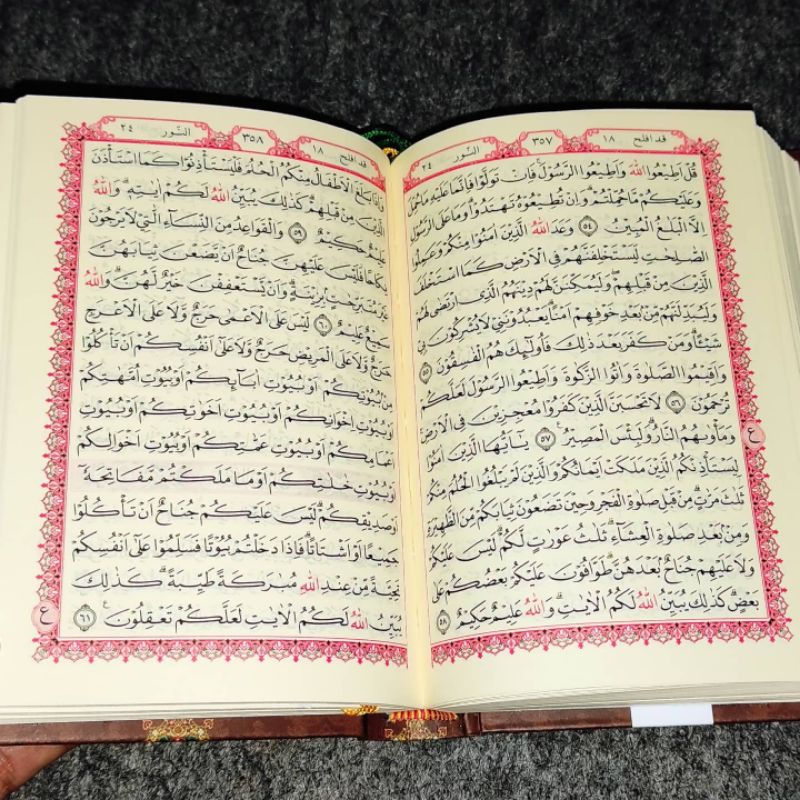 قد افلح ١٨
٣٥٧
النّور ٢٤
قُلْ اَطِيْعُوا اللّٰهَ وَاَطِيْعُوا الرَّسُوْلَ ۚ فَاِنْ تَوَلَّوْا فَاِنَّمَا عَلَيْهِ مَا حُمِّلَ
وَعَلَيْكُمْ مَّا حُمِّلْتُمْ ۗ وَاِنْ تُطِيْعُوْهُ تَهْتَدُوْا ۗ وَمَا عَلَى الرَّسُوْلِ
اِلَّا الْبَلٰغُ الْمُبِيْنُ ٥٤ وَعَدَ اللّٰهُ الَّذِيْنَ اٰمَنُوْا مِنْكُمْ وَعَمِلُوا
الصّٰلِحٰتِ لَيَسْتَخْلِفَنَّهُمْ فِى الْاَرْضِ كَمَا اسْتَخْلَفَ
الَّذِيْنَ مِنْ قَبْلِهِمْ ۖ وَلَيُمَكِّنَنَّ لَهُمْ دِيْنَهُمُ الَّذِى ارْتَضٰى لَهُمْ
وَلَيُبَدِّلَنَّهُمْ مِّنْۢ بَعْدِ خَوْفِهِمْ اَمْنًا ۗ يَعْبُدُوْنَنِيْ لَا يُشْرِكُوْنَ بِيْ
شَيْـًٔا ۗ وَمَنْ كَفَرَ بَعْدَ ذٰلِكَ فَاُولٰۤىِٕكَ هُمُ الْفٰسِقُوْنَ ٥٥
وَاَقِيْمُوا الصَّلٰوةَ وَاٰتُوا الزَّكٰوةَ وَاَطِيْعُوا الرَّسُوْلَ لَعَلَّكُمْ
تُرْحَمُوْنَ ٥٦ لَا تَحْسَبَنَّ الَّذِيْنَ كَفَرُوْا مُعْجِزِيْنَ فِى الْاَرْضِ
وَمَأْوٰىهُمُ النَّارُ ۗ وَلَبِئْسَ الْمَصِيْرُ ٥٧ يٰٓاَيُّهَا الَّذِيْنَ اٰمَنُوْا
لِيَسْتَأْذِنْكُمُ الَّذِيْنَ مَلَكَتْ اَيْمَانُكُمْ وَالَّذِيْنَ لَمْ يَبْلُغُوا الْحُلُمَ مِنْكُمْ
ثَلٰثَ مَرّٰتٍ ۗ مِنْ قَبْلِ صَلٰوةِ الْفَجْرِ وَحِيْنَ تَضَعُوْنَ ثِيَابَكُمْ مِّنَ الظَّهِيْرَةِ
وَمِنْۢ بَعْدِ صَلٰوةِ الْعِشَاۤءِ ۗ ثَلٰثُ عَوْرٰتٍ لَّكُمْ ۗ لَيْسَ عَلَيْكُمْ
وَلَا عَلَيْهِمْ جُنَاحٌۢ بَعْدَهُنَّ ۗ طَوَّافُوْنَ عَلَيْكُمْ بَعْضُكُمْ عَلٰى
بَعْضٍ ۗ كَذٰلِكَ يُبَيِّنُ اللّٰهُ لَكُمُ الْاٰيٰتِ ۗ وَاللّٰهُ عَلِيْمٌ حَكِيْمٌ ٥٨
ع
قد افلح ١٨
٣٥٨
النّور ٢٤
وَاِذَا بَلَغَ الْاَطْفَالُ مِنْكُمُ الْحُلُمَ فَلْيَسْتَأْذِنُوْا كَمَا اسْتَأْذَنَ
الَّذِيْنَ مِنْ قَبْلِهِمْ ۗ كَذٰلِكَ يُبَيِّنُ اللّٰهُ لَكُمْ اٰيٰتِهٖ ۗ وَاللّٰهُ
عَلِيْمٌ حَكِيْمٌ ٥٩ وَالْقَوَاعِدُ مِنَ النِّسَاۤءِ الّٰتِيْ لَا يَرْجُوْنَ
نِكَاحًا فَلَيْسَ عَلَيْهِنَّ جُنَاحٌ اَنْ يَّضَعْنَ ثِيَابَهُنَّ
غَيْرَ مُتَبَرِّجٰتٍۢ بِزِيْنَةٍ ۗ وَاَنْ يَّسْتَعْفِفْنَ خَيْرٌ لَّهُنَّ ۗ وَاللّٰهُ
سَمِيْعٌ عَلِيْمٌ ٦٠ لَيْسَ عَلَى الْاَعْمٰى حَرَجٌ وَّلَا عَلَى الْاَعْرَجِ
حَرَجٌ وَّلَا عَلَى الْمَرِيْضِ حَرَجٌ وَّلَا عَلٰٓى اَنْفُسِكُمْ اَنْ تَأْكُلُوْا
مِنْۢ بُيُوْتِكُمْ اَوْ بُيُوْتِ اٰبَاۤىِٕكُمْ اَوْ بُيُوْتِ اُمَّهٰتِكُمْ
اَوْ بُيُوْتِ اِخْوَانِكُمْ اَوْ بُيُوْتِ اَخَوٰتِكُمْ اَوْ بُيُوْتِ
اَعْمَامِكُمْ اَوْ بُيُوْتِ عَمّٰتِكُمْ اَوْ بُيُوْتِ اَخْوَالِكُمْ
اَوْ بُيُوْتِ خٰلٰتِكُمْ اَوْ مَا مَلَكْتُمْ مَّفَاتِحَهٗٓ
اَوْ صَدِيْقِكُمْ ۗ لَيْسَ عَلَيْكُمْ جُنَاحٌ اَنْ تَأْكُلُوْا
جَمِيْعًا اَوْ اَشْتَاتًا ۗ فَاِذَا دَخَلْتُمْ بُيُوْتًا فَسَلِّمُوْا عَلٰٓى اَنْفُسِكُمْ
تَحِيَّةً مِّنْ عِنْدِ اللّٰهِ مُبٰرَكَةً طَيِّبَةً ۗ كَذٰلِكَ
يُبَيِّنُ اللّٰهُ لَكُمُ الْاٰيٰتِ لَعَلَّكُمْ تَعْقِلُوْنَ ٦١
ع